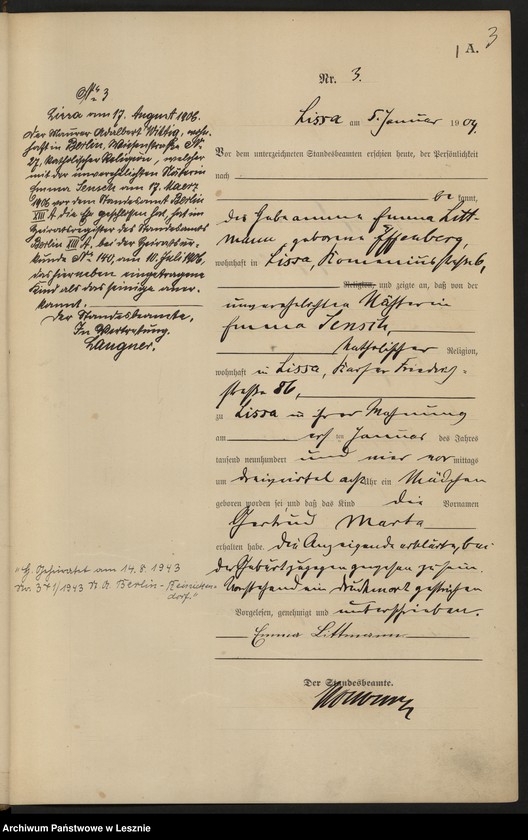 3
1 A.
Nr. 3.
Lissa am 5. Januar 1904.
Vor dem unterzeichneten Standesbeamten erschien heute, der Persönlichkeit
nach
be kannt,
die Hebeamme Emma Litt-
mann geborene Effenberg,
wohnhaft in Lissa, Komeniusstraße 6,
Religion, und zeigte an, daß von der
unverehelichten Nähterin
Emma Jensch,
katholischer Religion,
wohnhaft in Lissa, Kaiser Friedrich-
straße 86,
zu Lissa in ihrer Wohnung
am ersten Januar des Jahres
tausend neunhundert und vier vor mittags
um dreiviertel acht Uhr ein Mädchen
geboren worden sei und daß das Kind die Vornamen
Gertrud Marta
erhalten habe. Die Anzeigende erklärte, bei
der Geburt zugegen gewesen zu sein.
Vorstehend ein Druckwort gestrichen
Vorgelesen, genehmigt und unterschrieben.
Emma Littmann
Der Standesbeamte.
No 3
Lissa am 17. August 1906.
Der Maurer Adalbert Wittig, wohn-
haft in Berlin, Wiesenstraße No
27, katholischer Religion, welcher
mit der unverehelichten Näherin
Emma Jensch am 17. Maerz
1906 vor dem Standesamt Berlin
XIII A. die Ehe geschlossen hat, hat im
Heiratsregister des Standesamts
Berlin XIII A. bei der Heiratsur-
kunde No 140, am 10. Juli 1906,
das hierneben eingetragene
Kind als das seinige aner-
kannt.
Der Standesbeamte.
In Vertretung.
Langner.
"H. Geheiratet am 14.8.1943
Nr. 341/1943 St. A. Berlin-Reinicken-
dorf."
Archiwum Państwowe w Lesznie